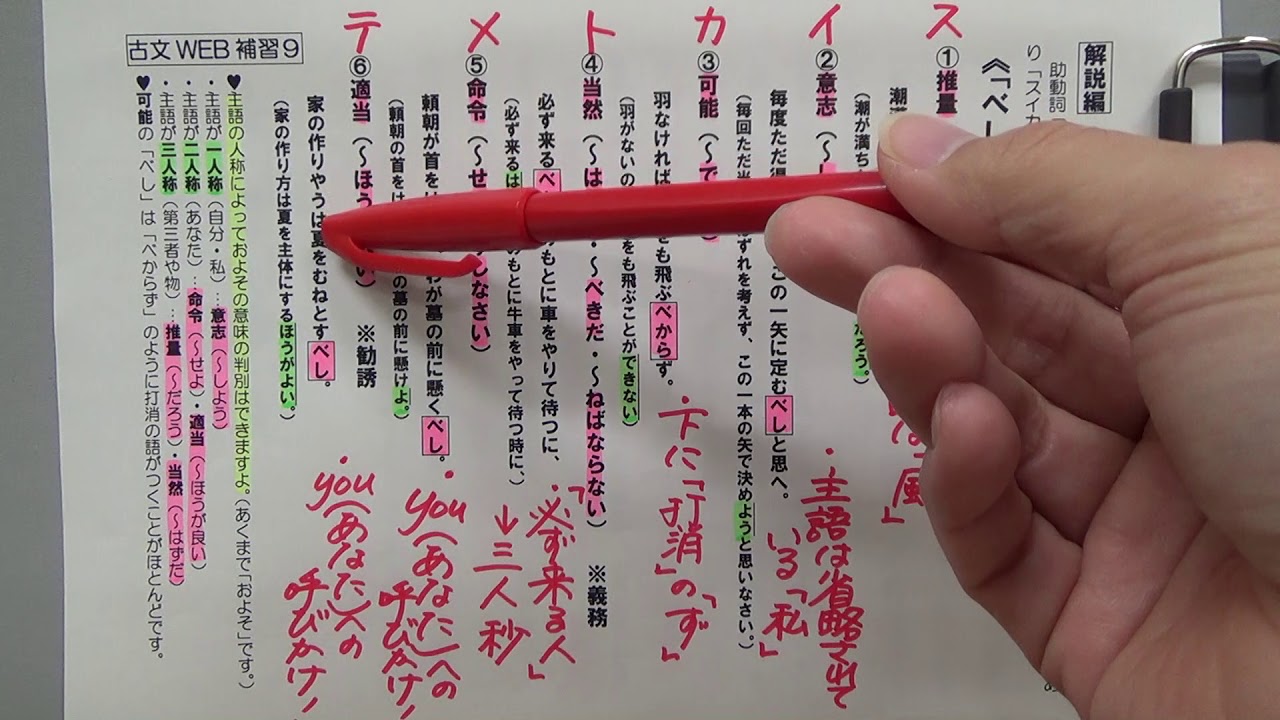 解説編
助動詞「
り「スイカ
《「べ
ス
①推量
潮
(潮が満ち
だろう。)
は「風」
イ
②意志(〜し
毎度ただ得
この一矢に定むべしと思へ。
(毎回ただ当
ずれを考えず、この一本の矢で決めようと思いなさい。)
・主語は省略されて
いる「私」
カ
③可能(〜で
羽なければ
とも飛ぶべからず。
(羽がないの
をも飛ぶことができない)
・下に「打消」の「ず」
ト
④当然(〜は
・〜べきだ・〜ねばならない) ※義務
必ず来るべ
のもとに車をやりて待つに、
(必ず来るは
のもとに牛車をやって待つ時に、
・「必ず来る人」
↓三人秒
メ
⑤命令(〜せ
しなさい)
頼朝が首を
わが墓の前に懸くべし。
(頼朝の首をは
の墓の前に懸けよ。)
・you(あなた)への
呼びかけ!
テ
⑥適当(〜ほう
い) ※勧誘
家の作りやうは夏をむねとすべし。
(家の作り方は夏を主体にするほうがよい。)
・you(あなた)への
呼びかけ!
♥主語の人称によっておよその意味の判別はできますよ。(あくまで「およそ」です。)
・主語が一人称(自分・私)…意志(〜しよう)
・主語が二人称(あなた)…命令(〜せよ)・適当(〜ほうが良い)
・主語が三人称(第三者や物)…推量(〜だろう)・当然(〜はずだ)
♥可能の「べし」は「べからず」のように打消の語がつくことがほとんどです。
古文WEB補習9